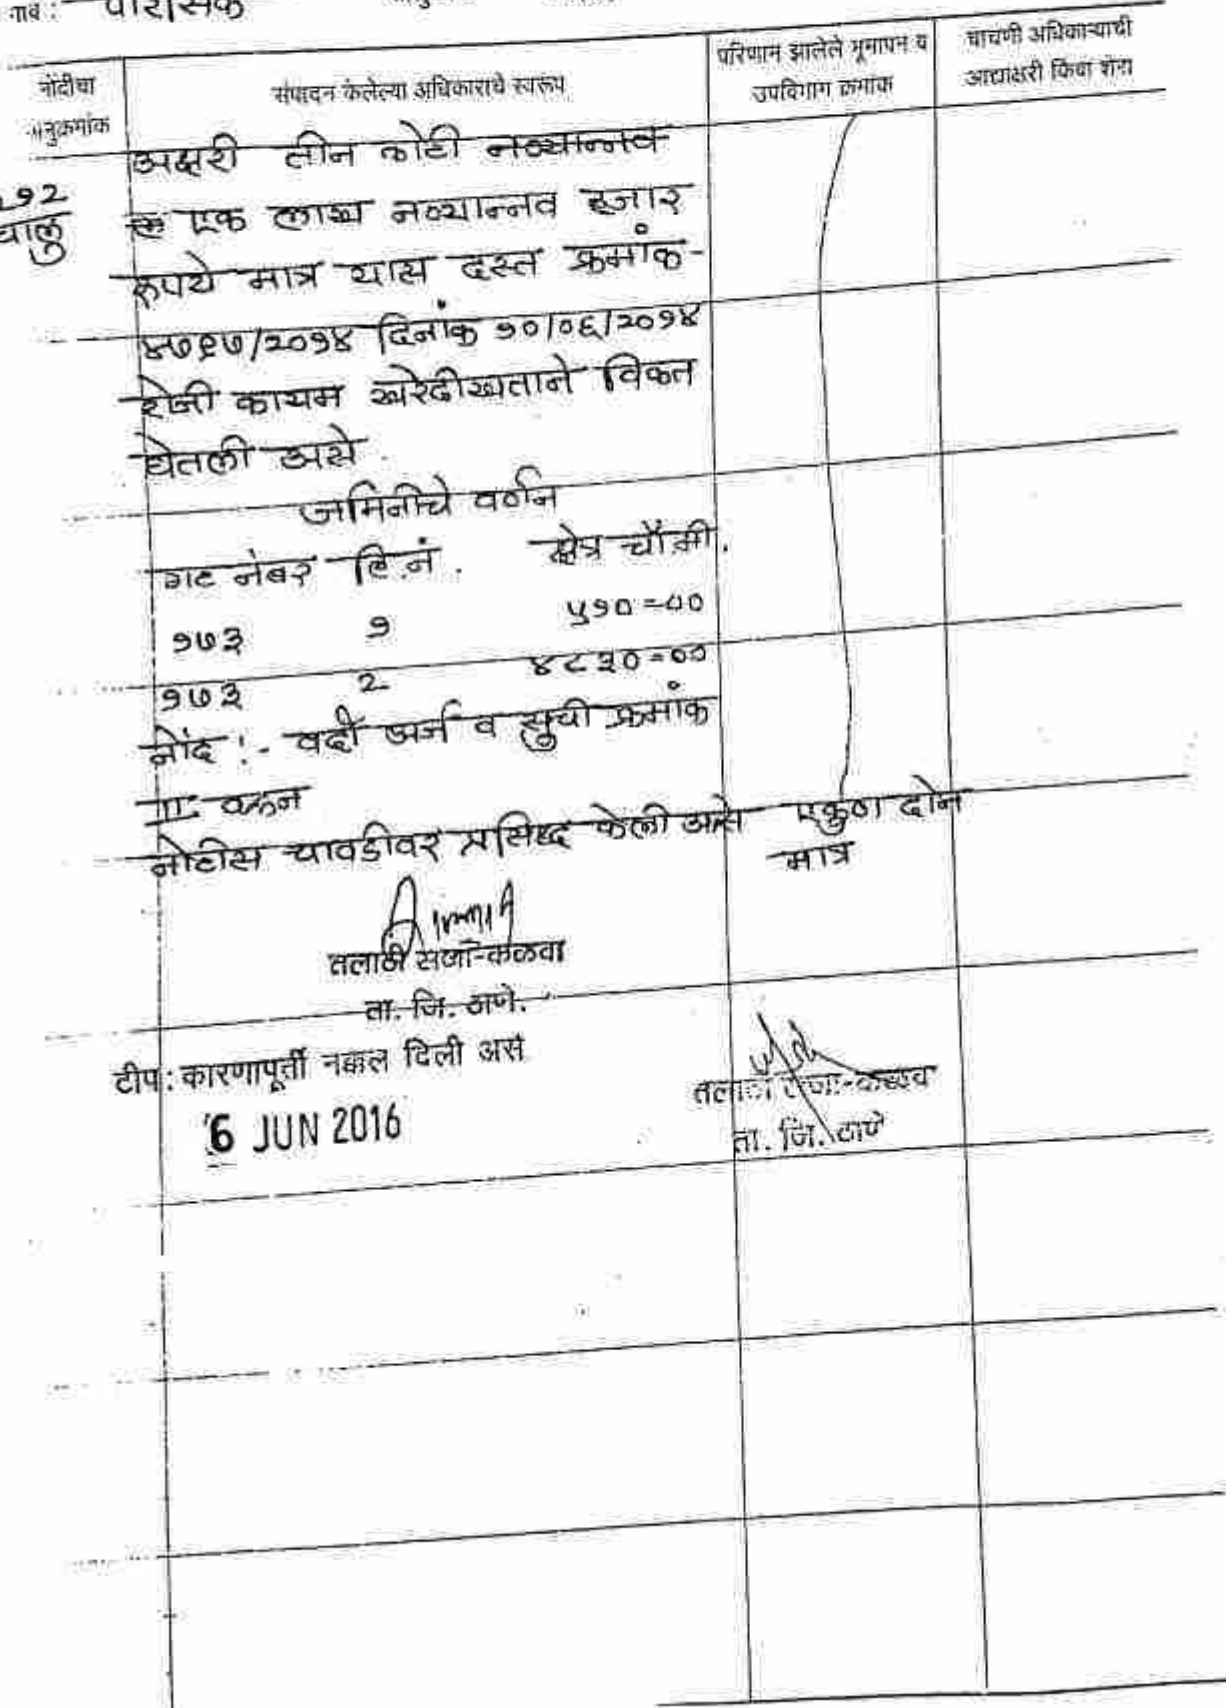 गाव : पारसिक
नोंदीचा अनुक्रमांक
संपादन केलेल्या अधिकाराचे स्वरूप
परिणाम झालेले भूमापन व उपविभाग क्रमांक
चाचणी अधिकाऱ्याची आद्याक्षरी किंवा शेरा
चालु
अक्षरी तीन कोटी नव्यान्नव
एक लाख नव्यान्नव हजार
रुपये मात्र यास दस्त क्रमांक-
४७९७/२०१४ दिनांक १०/०६/२०१४
रोजी कायम खरेदीखताने विकत
घेतली असे.
जमिनीचे वर्णन
गट नंबर हि.नं. क्षेत्र चौ.मी.
१७३ १ ५१०=००
१७३ २ ४८३०=००
नोंद :- वर्दी अर्ज व सुची क्रमांक
वरून
नोटीस चावडीवर प्रसिध्द केली असे एकुण दोन
मात्र
तलाठी सजा-कळवा
ता. जि. ठाणे.
टीप : कारणापूर्ती नक्कल दिली असे
6 JUN 2016
तलाठी सजा-कळवा
ता. जि. ठाणे